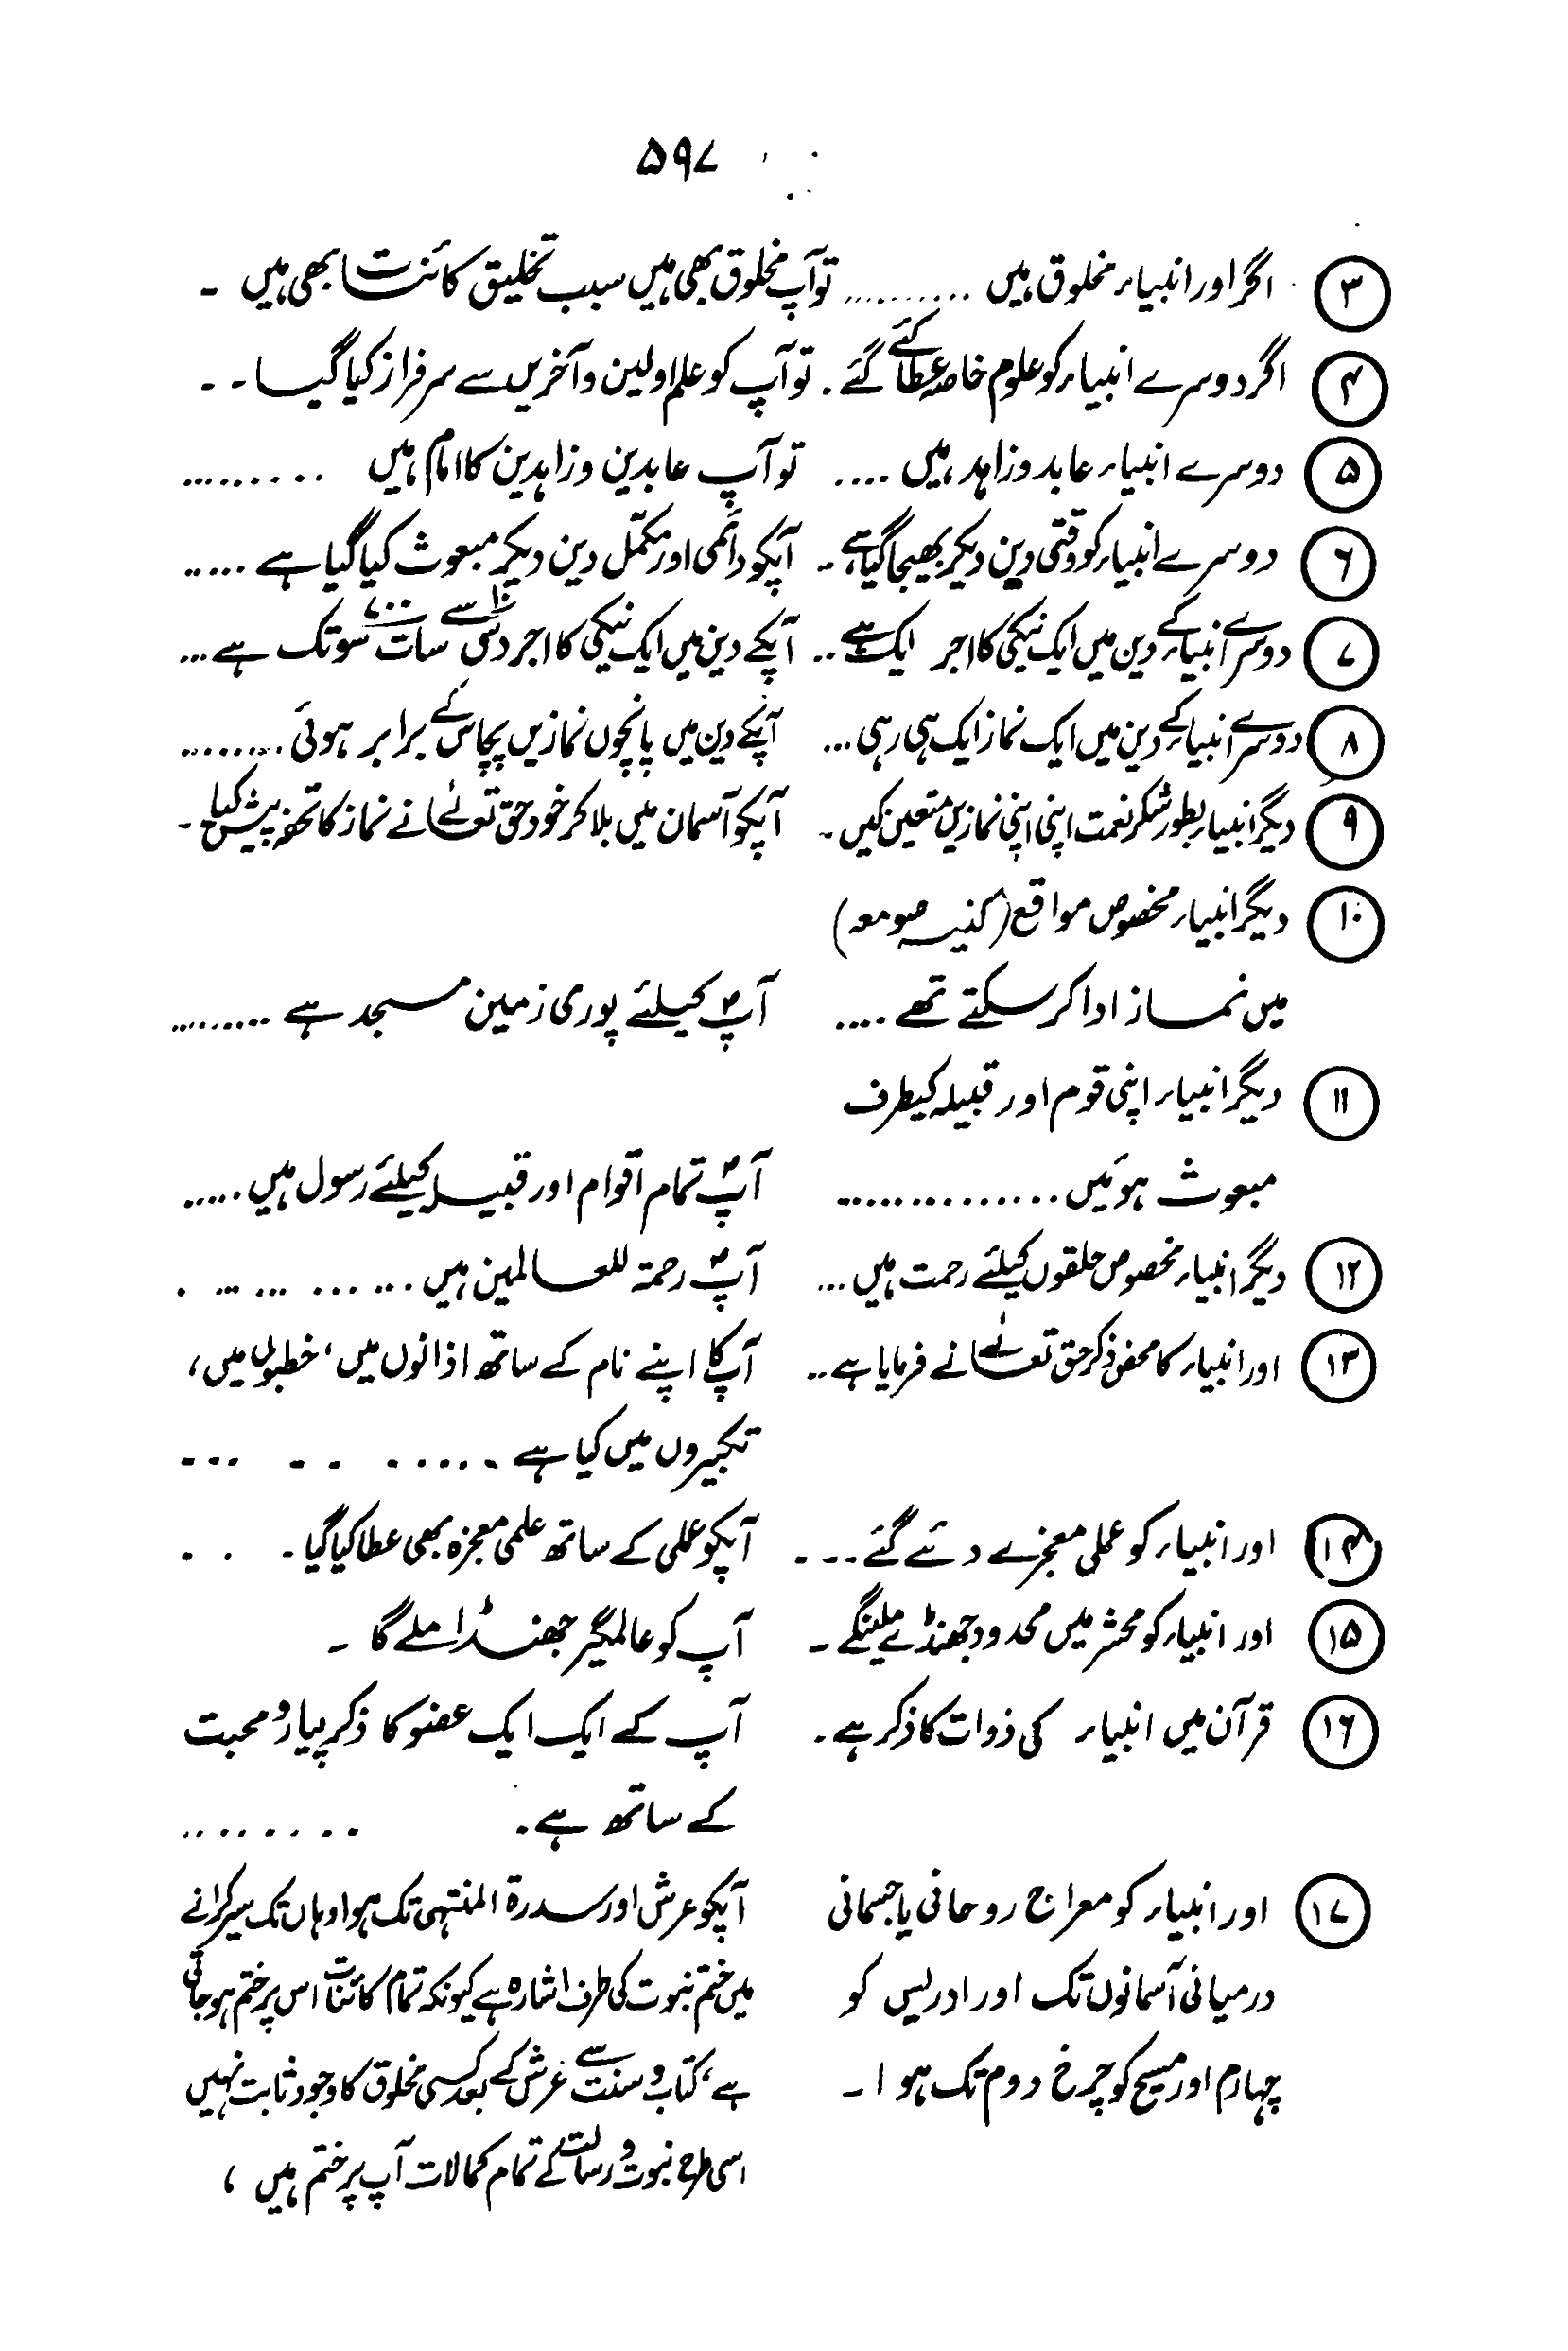 ۵۹۷
۳ اگر اور انبیاء مخلوق ہیں .......... تو آپ مخلوق بھی ہیں سبب تخلیق کائنات بھی ہیں ۔
۴ اگر دوسرے انبیاء کو علوم خاصہ عطا کئے گئے . تو آپ کو علم اولین و آخریں سے سرفراز کیا گیا ۔ ۔
۵ دوسرے انبیاء عابد و زاہد ہیں .... تو آپ عابدین و زاہدین کا امام ہیں .........
۶ دوسرے انبیاء کو وقتی دین دیکر بھیجا گیا ہے ۔ آپکو دائمی اور مکمّل دین دیکر مبعوث کیا گیا ہے .....
۷ دوسرے انبیاء کے دین میں ایک نیکی کا اجر ایک ہے .. آپکے دین میں ایک نیکی کا اجر دس ۱۰ سے سات سو ۷۰۰ تک ہے ...
۸ دوسرے انبیاء کے دین میں ایک نماز ایک ہی رہی ... آپکے دین میں پانچوں نمازیں پچاس کے برابر ہوئی ........
۹ دیگر انبیاء بطور شکر نعمت اپنی اپنی نمازیں متعین کیں ۔ آپکو آسمان میں بلا کر خود حق تعالےٰ نے نماز کا تحفہ پیش کیا ۔
۱۰ دیگر انبیاء مخصوص مواقع (کنیسہ صومعہ)
میں نماز ادا کر سکتے تھے .... آپؐ کیلئے پوری زمین مسجد ہے .........
۱۱ دیگر انبیاء اپنی قوم اور قبیلہ کیطرف
مبعوث ہوئیں ............... آپؐ تمام اقوام اور قبیلہ کیلئے رسول ہیں .....
۱۲ دیگر انبیاء مخصوص حلقوں کیلئے رحمت ہیں ... آپؐ رحمۃ للعالمین ہیں ... ... ... ... .
۱۳ اور انبیاء کا محض ذکر حق تعالےٰ نے فرمایا ہے .. آپ کا اپنے نام کے ساتھ اذانوں میں، خطبوں میں،
تکبیروں میں کیا ہے ...... .. ...
۱۴ اور انبیاء کو عملی معجزے دئے گئے ... آپکو عملی کے ساتھ علمی معجزہ بھی عطا کیا گیا ۔ . .
۱۵ اور انبیاء کو محشر میں محدود جھنڈے ملینگے ۔ آپ کو عالمگیر جھنڈا ملے گا ۔
۱۶ قرآن میں انبیاء کی ذوات کا ذکر ہے ۔ آپ کے ایک ایک عضو کا ذکر پیار و محبت
کے ساتھ ہے ۔ ........
۱۷ اور انبیاء کو معراج روحانی یا جسمانی آپکو عرش اور سدرۃ المنتہی تک ہوا وہاں تک سیر کرانے
درمیانی آسمانوں تک اور ادریس کو میں ختم نبوت کی طرف اشارہ ہے کیونکہ تمام کائنات اس پر ختم ہو جاتی
چہارم اور مسیح کو چرخ دوم تک ہوا ۔ ہے، کتاب و سنت سے عرش کے بعد کسی مخلوق کا وجود ثابت نہیں
اسی طرح نبوت و رسالت کے تمام کمالات آپ پر ختم ہیں ،